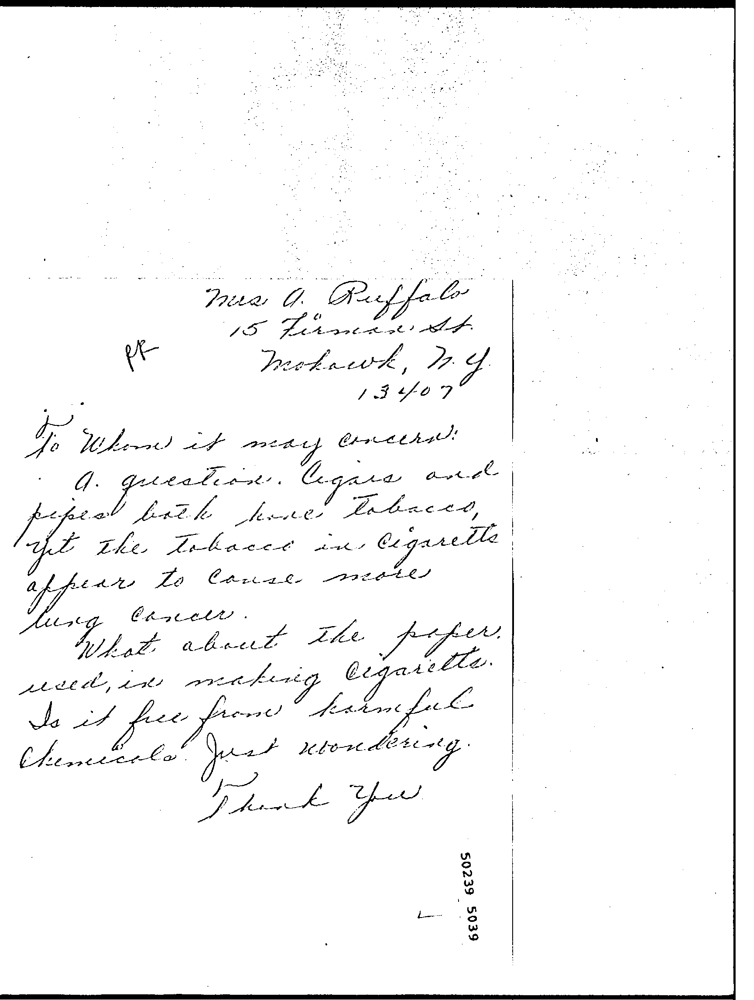 Mrs A. Ruffalo
15 Firman St.
Mohawk, N.Y.
13407
To Whom it may concern:
A. question. Cigars and
pipes both have tobacco,
yet the tobacco in cigaretts
appear to cause more
lung cancer.
What about the paper.
used, in making Cigaretts.
Is it free from harmful
Chemicals. Just wondering.
Thank You
50239 5039